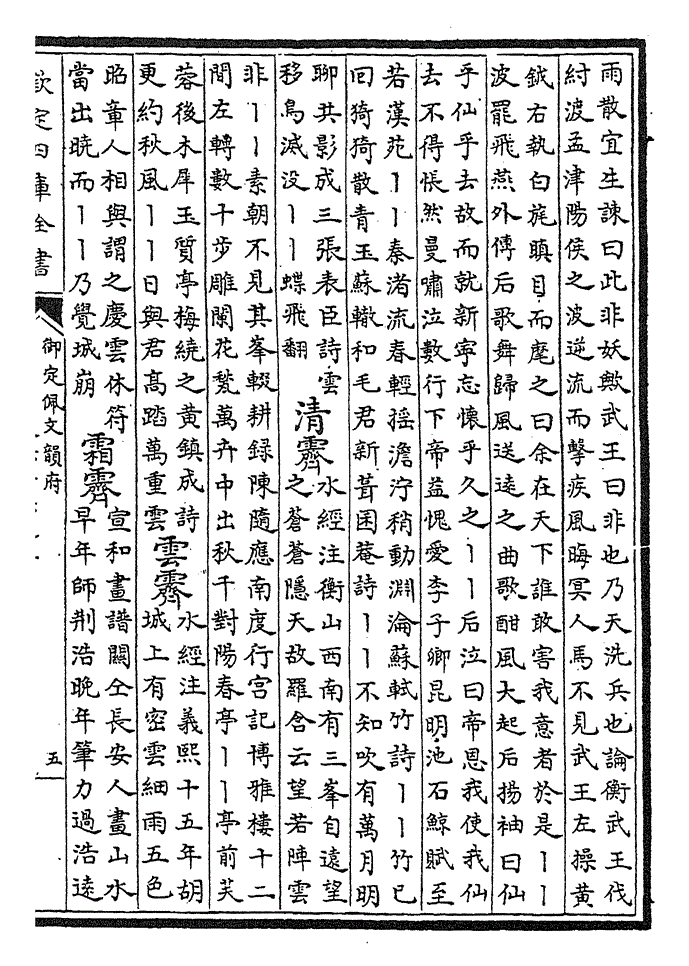 雨散宜生諫曰此非妖歟武王曰非也乃天洗兵也論衡武王伐
紂波孟津陽侯之波逆流而擊疾風晦冥人馬不見武王左操黃
鉞右執白旄瞋目而麾之曰余在天下誰敢害我意者於是丨丨
波罷飛燕外傳后歌舞歸風送遠之曲歌酣風大起后揚袖曰仙
乎仙乎去故而就新寧忘懷乎久之丨丨后泣曰帝恩我使我仙
去不得悵然曼嘯泣數行下帝益愧愛李子卿昆明池石鯨賦至
若漢苑丨丨秦渚流春輕搖澹泞稍動淵淪蘇軾竹詩丨丨竹已
回猗猗散青玉蘇轍和毛君新葺困菴詩丨丨不知吹有萬月明
聊共影成三張表臣詩雲
移鳥滅没丨丨蝶飛翻
清霽
水經注衡山西南有三峯自遠望
之蒼蒼隱天故羅含云望若陣雲
非丨丨素朝不見其峯輟耕録陳隨應南度行宮記博雅樓十二
間左轉數十步雕闌花甃萬卉中出秋千對陽春亭丨丨亭前芙
蓉後木犀玉質亭梅繞之黃鎮成詩
更約秋風丨丨日與君髙踏萬重雲
雲霽
水經注義熙十五年胡
城上有密雲細雨五色
昭章人相與謂之慶雲休符
當出曉而丨丨乃覺城崩
霜霽
宣和畫譜關仝長安人畫山水
早年師荆浩晚年筆力過浩遠
欽定四庫全書
御定佩文韻府
五